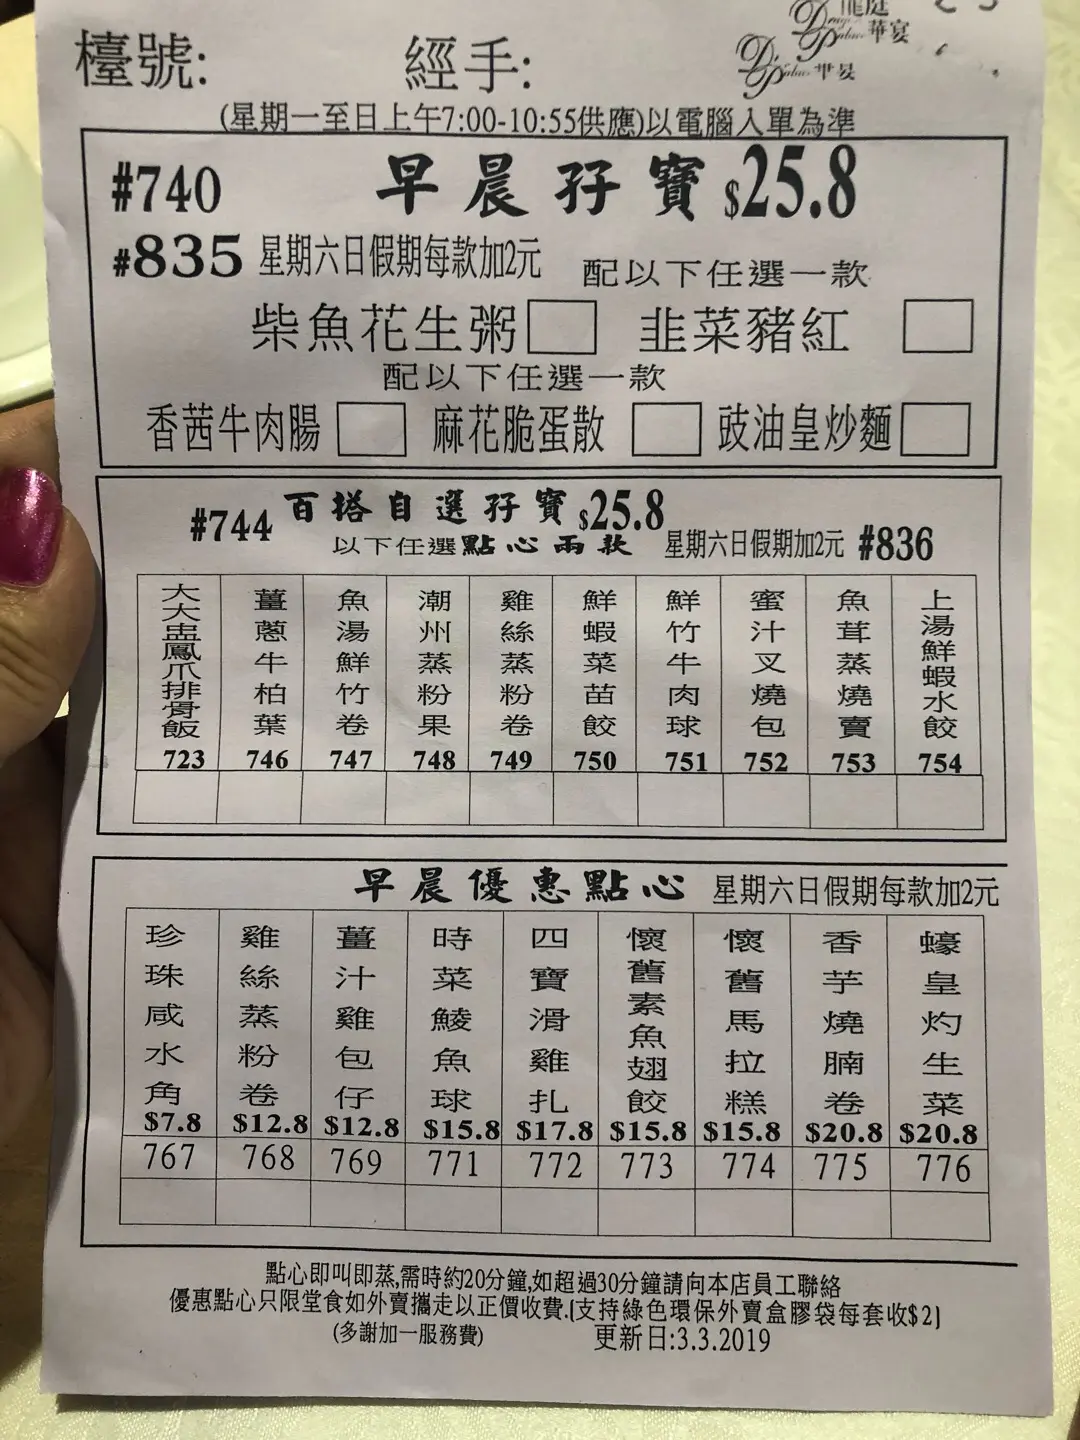 龍庭
Dragon
Palace 華宴
Palace 華宴
檯號:
經手:
(星期一至日上午7:00-10:55供應)以電腦入單為準
#740 早晨孖寶 $25.8
#835 星期六日假期每款加2元 配以下任選一款
柴魚花生粥 韭菜豬紅
配以下任選一款
香茜牛肉腸 麻花脆蛋散 豉油皇炒麵
#744 百搭自選孖寶 $25.8
以下任選點心兩款 星期六日假期加2元 #836
大大盅鳳爪排骨飯 723
薑蔥牛柏葉 746
魚湯鮮竹卷 747
潮州蒸粉果 748
雞絲蒸粉卷 749
鮮蝦菜苗餃 750
鮮竹牛肉球 751
蜜汁叉燒包 752
魚茸蒸燒賣 753
上湯鮮蝦水餃 754
早晨優惠點心 星期六日假期每款加2元
珍珠咸水角 $7.8 767
雞絲蒸粉卷 $12.8 768
薑汁雞包仔 $12.8 769
時菜鯪魚球 $15.8 771
四寶滑雞扎 $17.8 772
懷舊素魚翅餃 $15.8 773
懷舊馬拉糕 $15.8 774
香芋燒腩卷 $20.8 775
蠔皇灼生菜 $20.8 776
點心即叫即蒸,需時約20分鐘,如超過30分鐘請向本店員工聯絡
優惠點心只限堂食如外賣攜走以正價收費.(支持綠色環保外賣盒膠袋每套收$2)
(多謝加一服務費) 更新日:3.3.2019